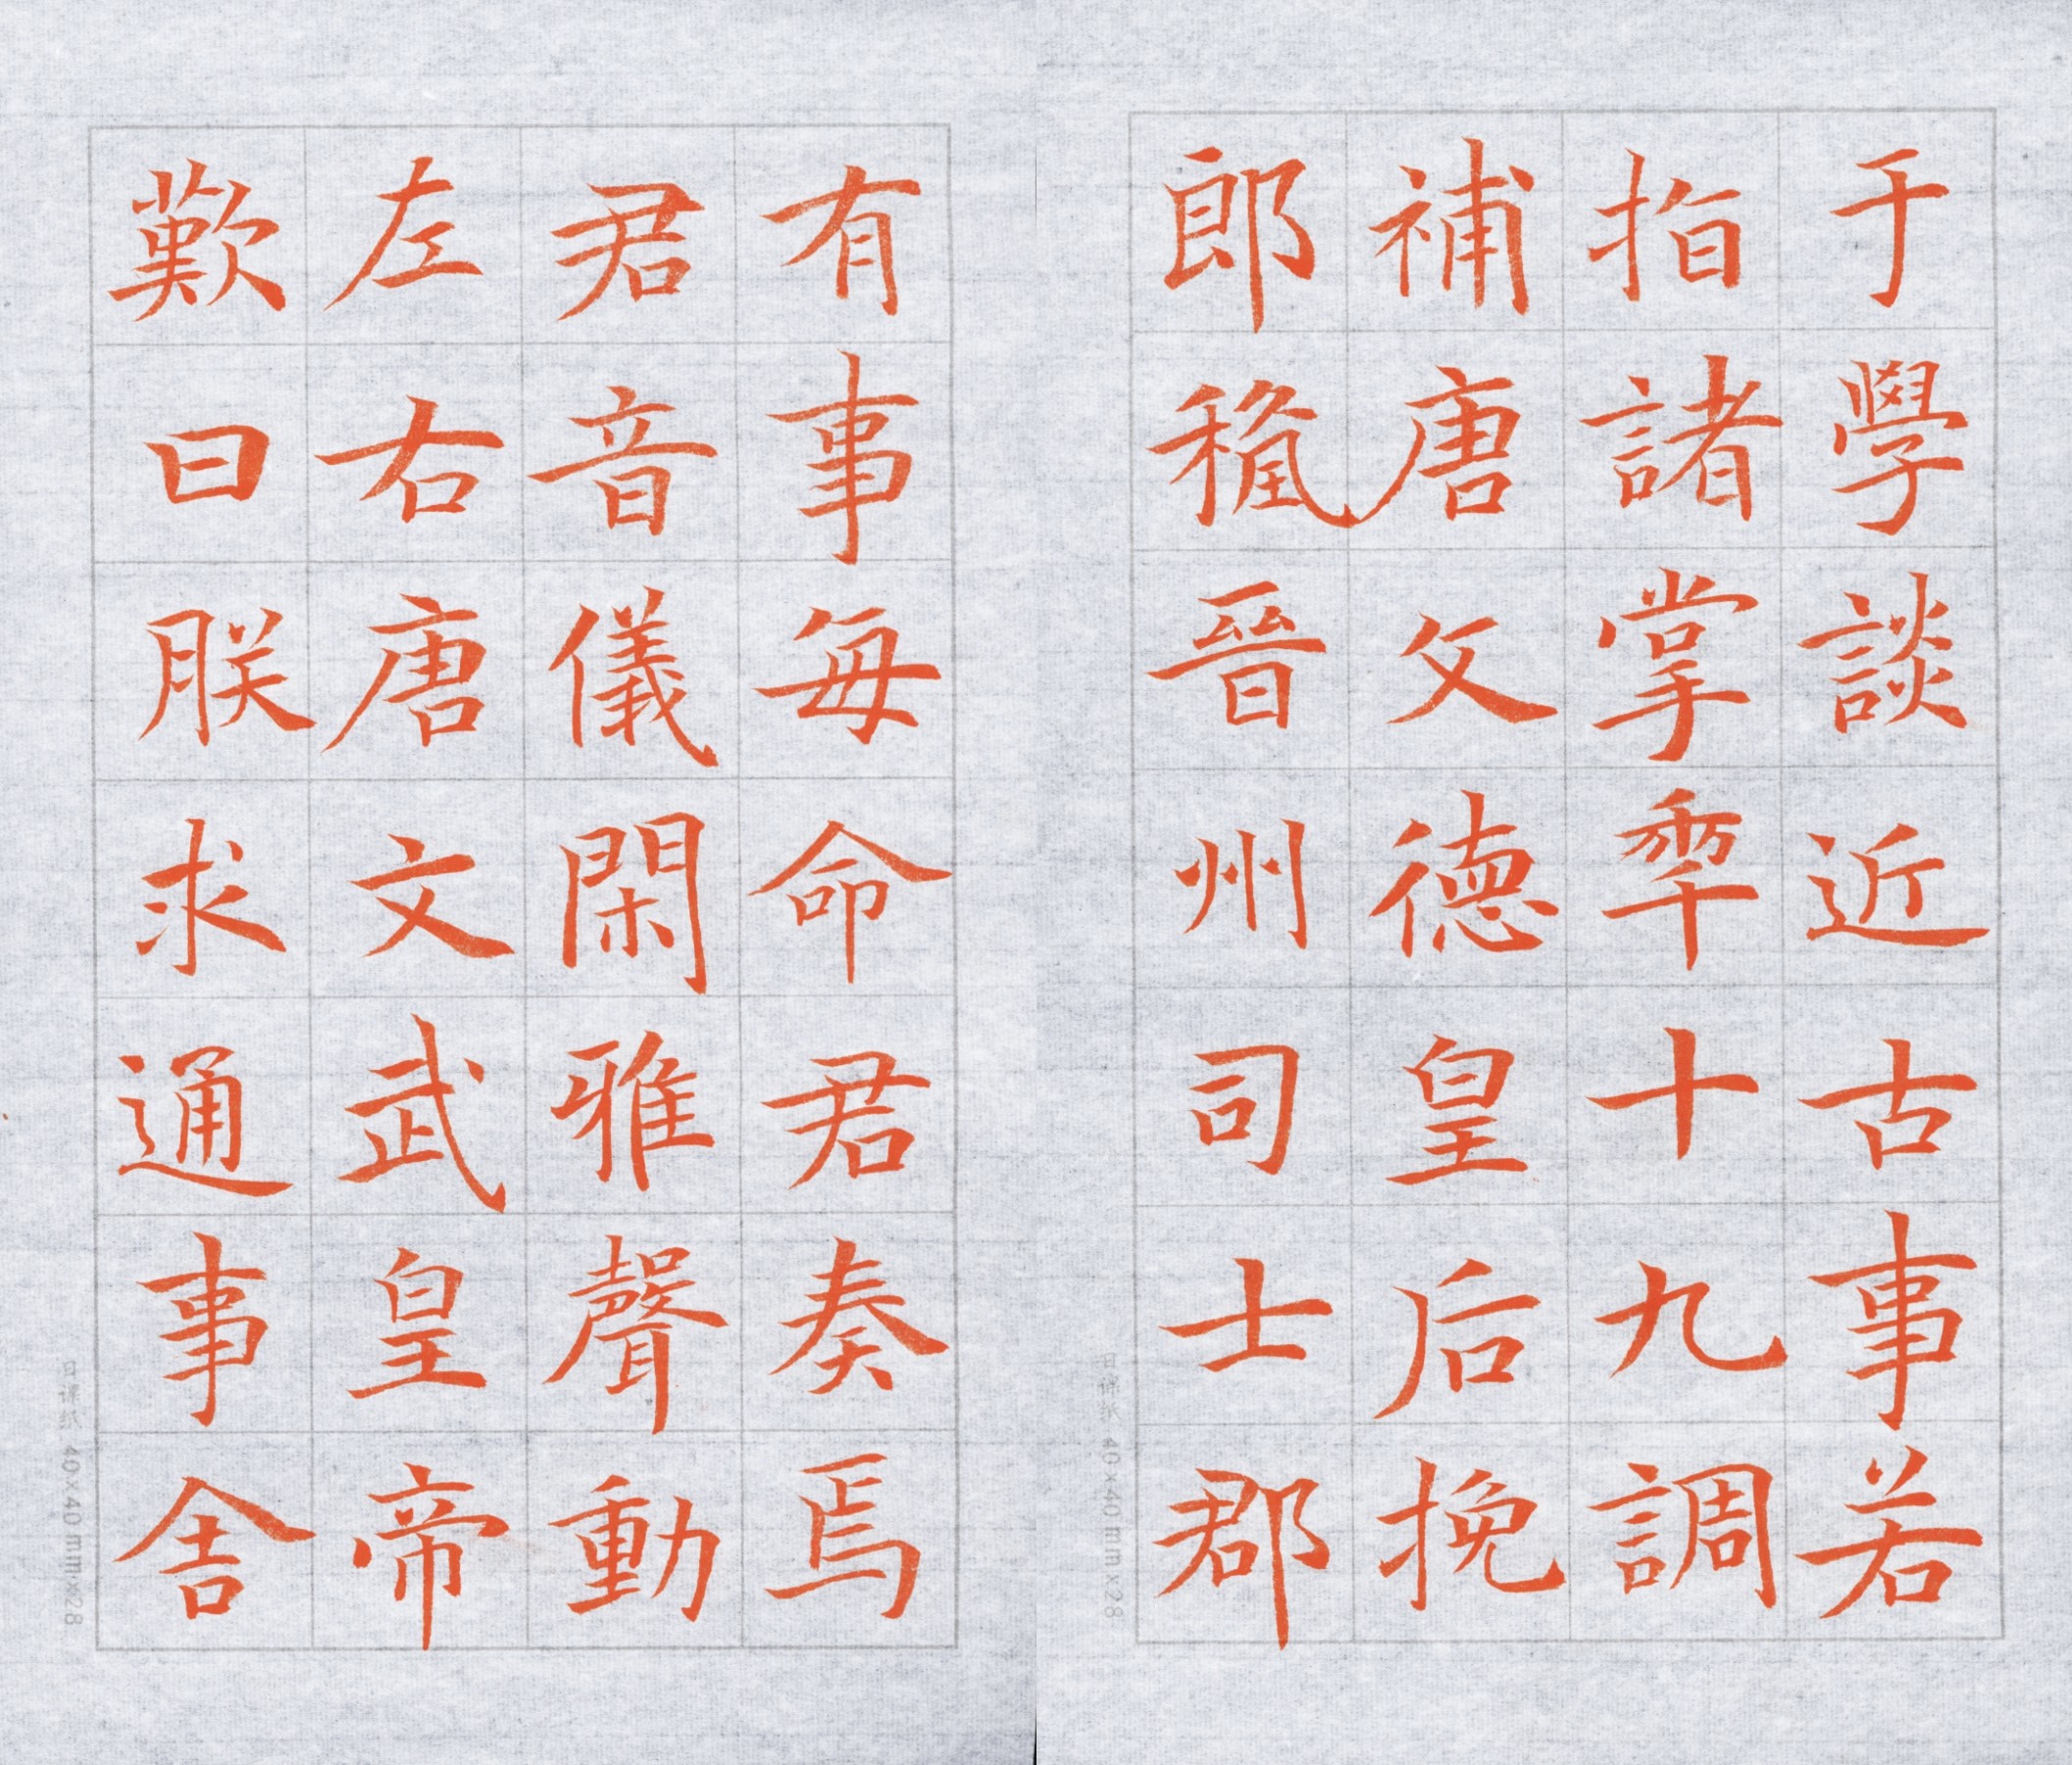 于學談近古事若
指諸掌𠡦十九調
補唐文德皇后挽
郎𥠢晉州司士郡
有事每命君奏焉
君音儀閑雅聲動
左右唐文武皇帝
歎曰朕求通事舍
日課紙 40×40mm×28
日課紙 40×40mm×28